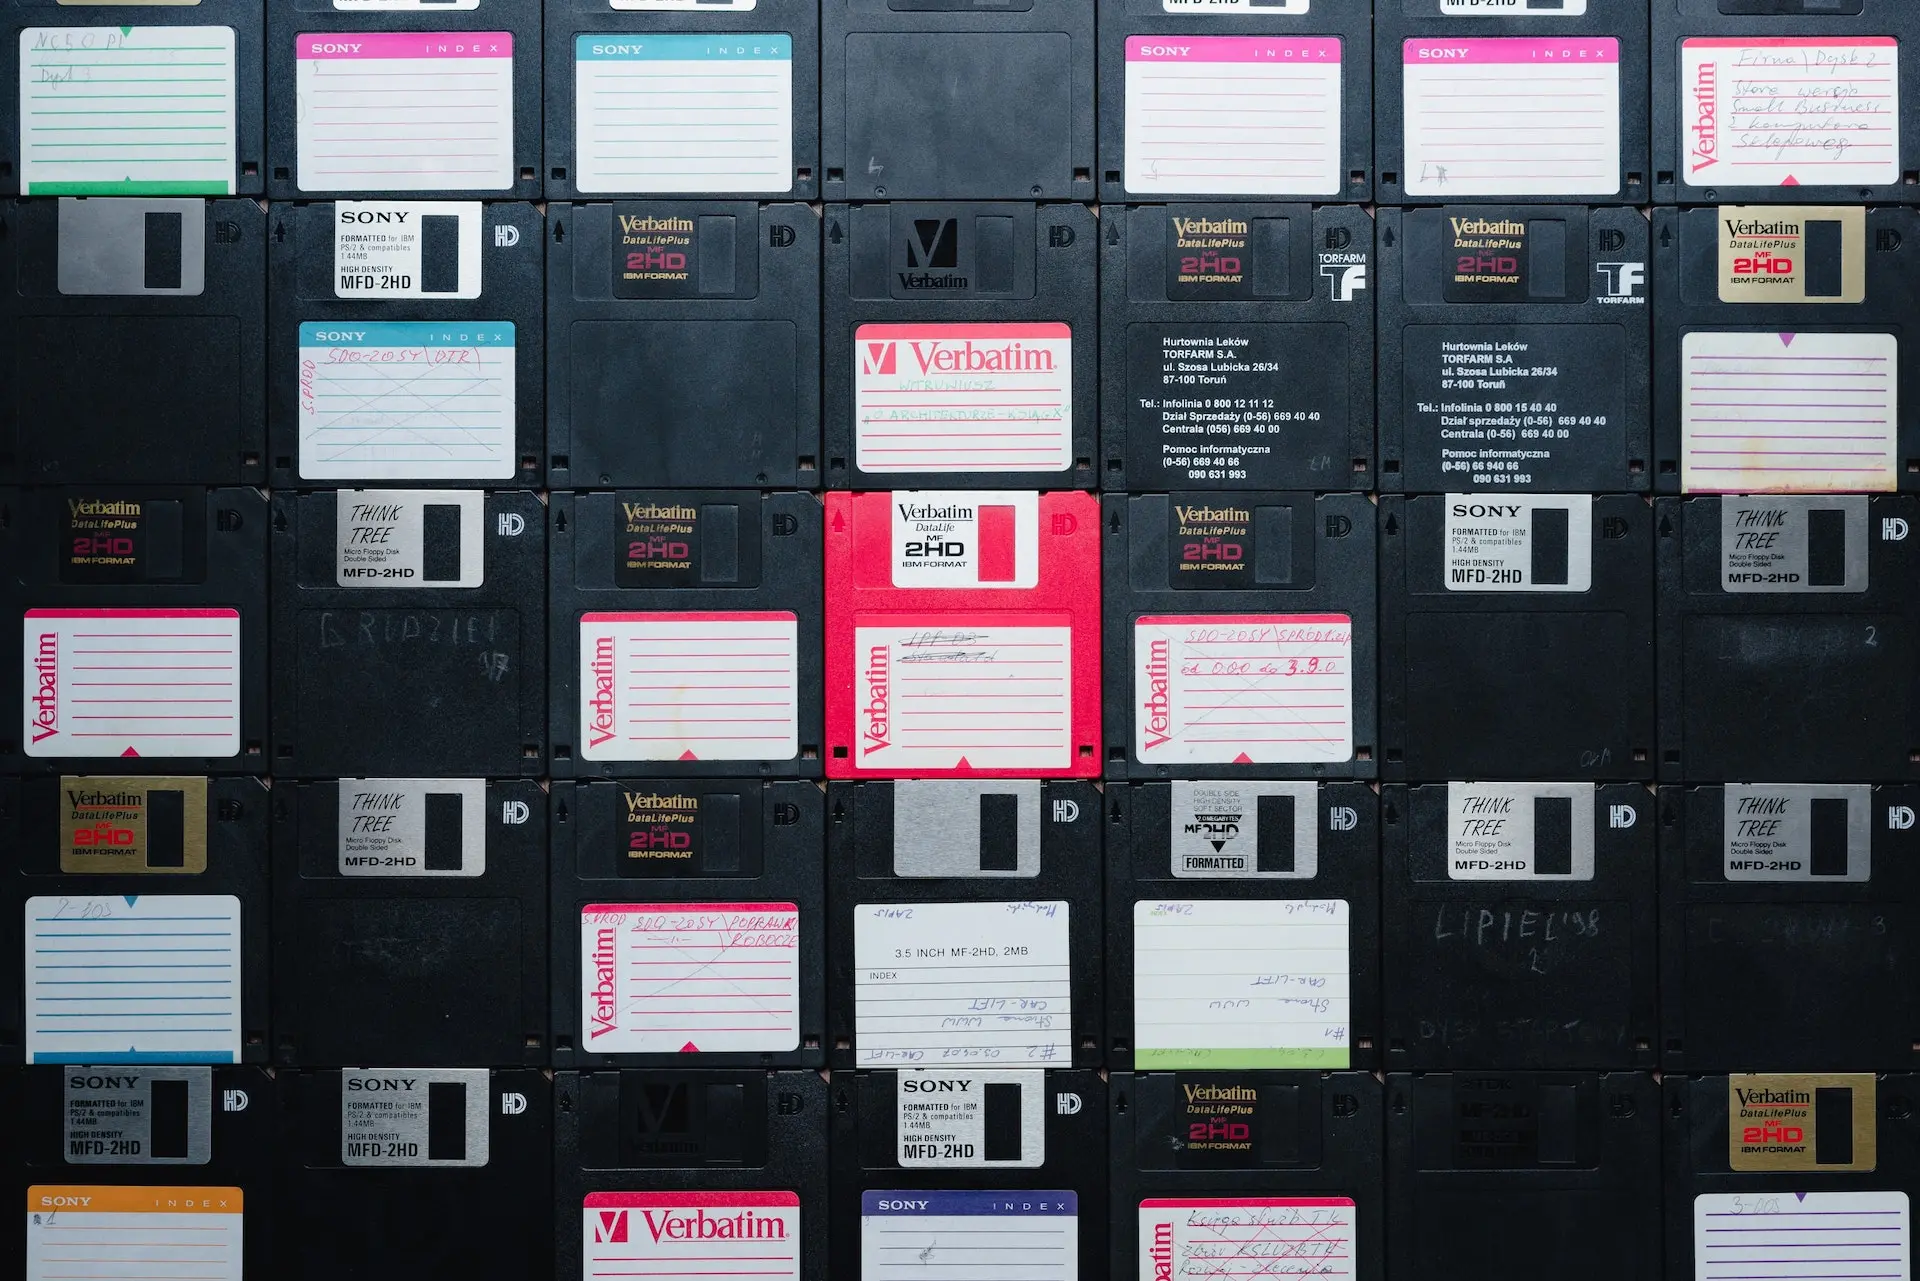 MFD-2HD
MF-2HD
MFD-2HD
MFD-2HD
Dysk
SONY INDEX
SONY INDEX
SONY INDEX
SONY INDEX
Verbatim
Firma\Dysk 2
Stara wersja
Small Business
z komputera
sklepowego
HD
SONY
FORMATTED for IBM
PS/2 & compatibles
1.44MB
HIGH DENSITY
MFD-2HD
HD
SONY INDEX
S.PROD
SDO-20SY\DTR\
Verbatim
DataLifePlus
MF
2HD
IBM FORMAT
HD
Verbatim
HD
Verbatim
WITRUWIUSZ
"O ARCHITEKTURZE-KSIĄG X"
Verbatim
DataLifePlus
MF
2HD
IBM FORMAT
HD
TORFARM
TF
Hurtownia Leków
TORFARM S.A.
ul. Szosa Lubicka 26/34
87-100 Toruń
Tel.: Infolinia 0 800 12 11 12
Dział Sprzedaży (0-56) 669 40 40
Centrala (056) 669 40 00
Pomoc informatyczna
(0-56) 669 40 66
090 631 993
Verbatim
DataLifePlus
MF
2HD
IBM FORMAT
HD
TF
TORFARM
Hurtownia Leków
TORFARM S.A
ul. Szosa Lubicka 26/34
87-100 Toruń
Tel.: Infolinia 0 800 15 40 40
Dział sprzedaży (0-56) 669 40 40
Centrala (0-56) 669 40 00
Pomoc informatyczna
(0-56) 66 940 66
090 631 993
Verbatim
DataLifePlus
MF
2HD
IBM FORMAT
HD
Verbatim
DataLifePlus
MF
2HD
IBM FORMAT
HD
Verbatim
THINK
TREE
Micro Floppy Disk
Double Sided
MFD-2HD
HD
Verbatim
DataLifePlus
MF
2HD
IBM FORMAT
HD
Verbatim
Verbatim
DataLife
MF
2HD
IBM FORMAT
HD
Verbatim
Standard
Verbatim
DataLifePlus
MF
2HD
IBM FORMAT
HD
Verbatim
SDO-20SY\SPROD1.zip
od 0.00 do 3.9.0
SONY
FORMATTED for IBM
PS/2 & compatibles
1.44MB
HIGH DENSITY
MFD-2HD
HD
THINK
TREE
Micro Floppy Disk
Double Sided
MFD-2HD
HD
2
Verbatim
DataLifePlus
MF
2HD
IBM FORMAT
HD
THINK
TREE
Micro Floppy Disk
Double Sided
MFD-2HD
HD
Verbatim
DataLifePlus
MF
2HD
IBM FORMAT
HD
S.PROD
SDO-20SY\POPRAWKI
\ROBOCZE
Verbatim
HD
3.5 INCH MF-2HD, 2MB
INDEX
ZAPIS
CAR-LIFT
Strona WWW
#2 05.06.07 CAR-LIFT
DOUBLE SIDE
HIGH DENSITY
SOFT SECTOR
2.0MEGABYTES
MF2HD
FORMATTED
HD
ZAPIS
CAR-LIFT
Strona WWW
#1
THINK
TREE
Micro Floppy Disk
Double Sided
MFD-2HD
HD
LIPIEC '98
2
THINK
TREE
Micro Floppy Disk
Double Sided
MFD-2HD
HD
3
SONY
FORMATTED for IBM
PS/2 & compatibles
1.44MB
HIGH DENSITY
MFD-2HD
HD
SONY INDEX
1
SONY
FORMATTED for IBM
PS/2 & compatibles
1.44MB
HIGH DENSITY
MFD-2HD
HD
Verbatim
HD
Verbatim
SONY
FORMATTED for IBM
PS/2 & compatibles
1.44MB
HIGH DENSITY
MFD-2HD
HD
SONY INDEX
Verbatim
DataLifePlus
MF
2HD
IBM FORMAT
HD
Verbatim
Księga służb TK
zbiór KSLUZBTK
TDK
MF-2HD
HD
Verbatim
DataLifePlus
MF
2HD
IBM FORMAT
3-DOS